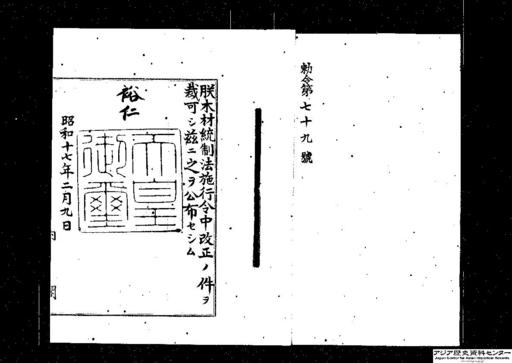 勅令第七十九號
朕木材統制法施行令中改正ノ件ヲ
裁可シ茲ニ之ヲ公布セシム
裕仁
天皇
御璽
昭和十七年二月九日
アジア歴史資料センター
Japan Center for Asian Historical Records